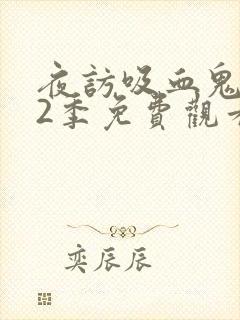 夜訪吸血鬼
2季免費觀
奕辰辰